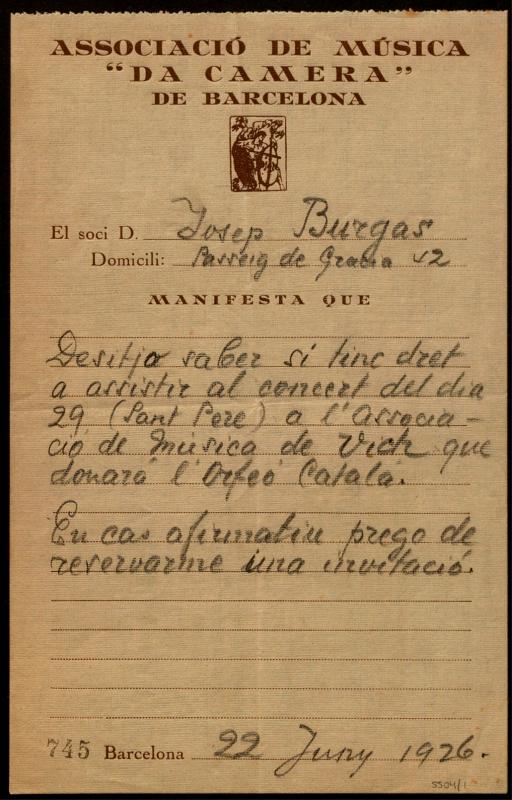 ASSOCIACIÓ DE MÚSICA
"DA CAMERA"
DE BARCELONA
El soci D. Josep Burgas
Domicili: Passeig de Gracia 42
MANIFESTA QUE
Desitja saber si tinc dret
a assistir al concert del dia
29 (Sant Pere) a l'Associa-
ció de Música de Vich que
donará l'Orfeó Catalá.
En cas afirmatiu prego de
reservarme una invitació.
745 Barcelona 22 Juny 1926.
5504/1